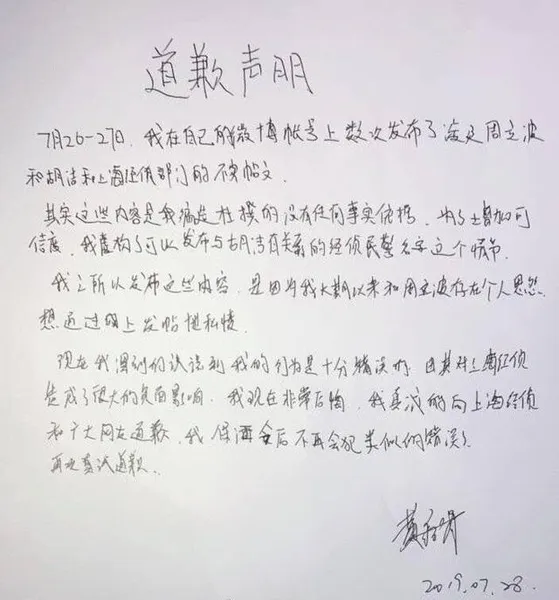 道歉声明
7月26-27日,我在自己的微博帐号上数次发布了涉及周立波
和胡洁和上海经侦部门的不实帖文.
其实这些内容是我编造杜撰的没有任何事实依据,为了增加可
信度,我虚构了可以发布与胡洁有关系的经侦民警名字这个情节.
我之所以发布这些内容,是因为我长期以来和周立波存在个人恩怨
想通过网上发帖泄私愤.
现在我深刻的认识到我的行为是十分错误的,因其对上海经侦
造成了很大的负面影响,我现在非常后悔,我真诚的向上海经侦
和广大网友道歉,我保证今后不再会犯类似的错误,
再次真诚道歉.
2019.07.28